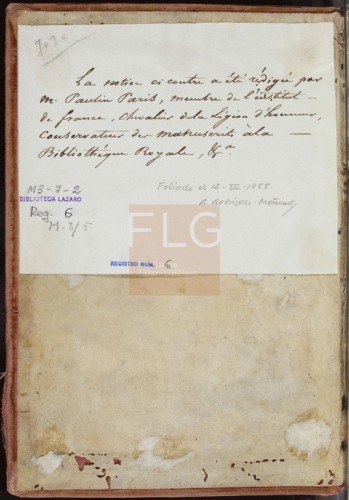 7070
La notice ci contre a été rédigée par
M. Paulin Paris, membre de l'institut
de france, Chevalier de la Légion d'honneur,
conservateur des manuscrits à la
Bibliothéque Royale, &a
M3-7-2
BIBLIOTECA LAZARO
Reg. 6
M-3/5
Foliado el 12-III-1955.
A Rodríguez-Moñino
FLG
REGISTRO NUM. 6